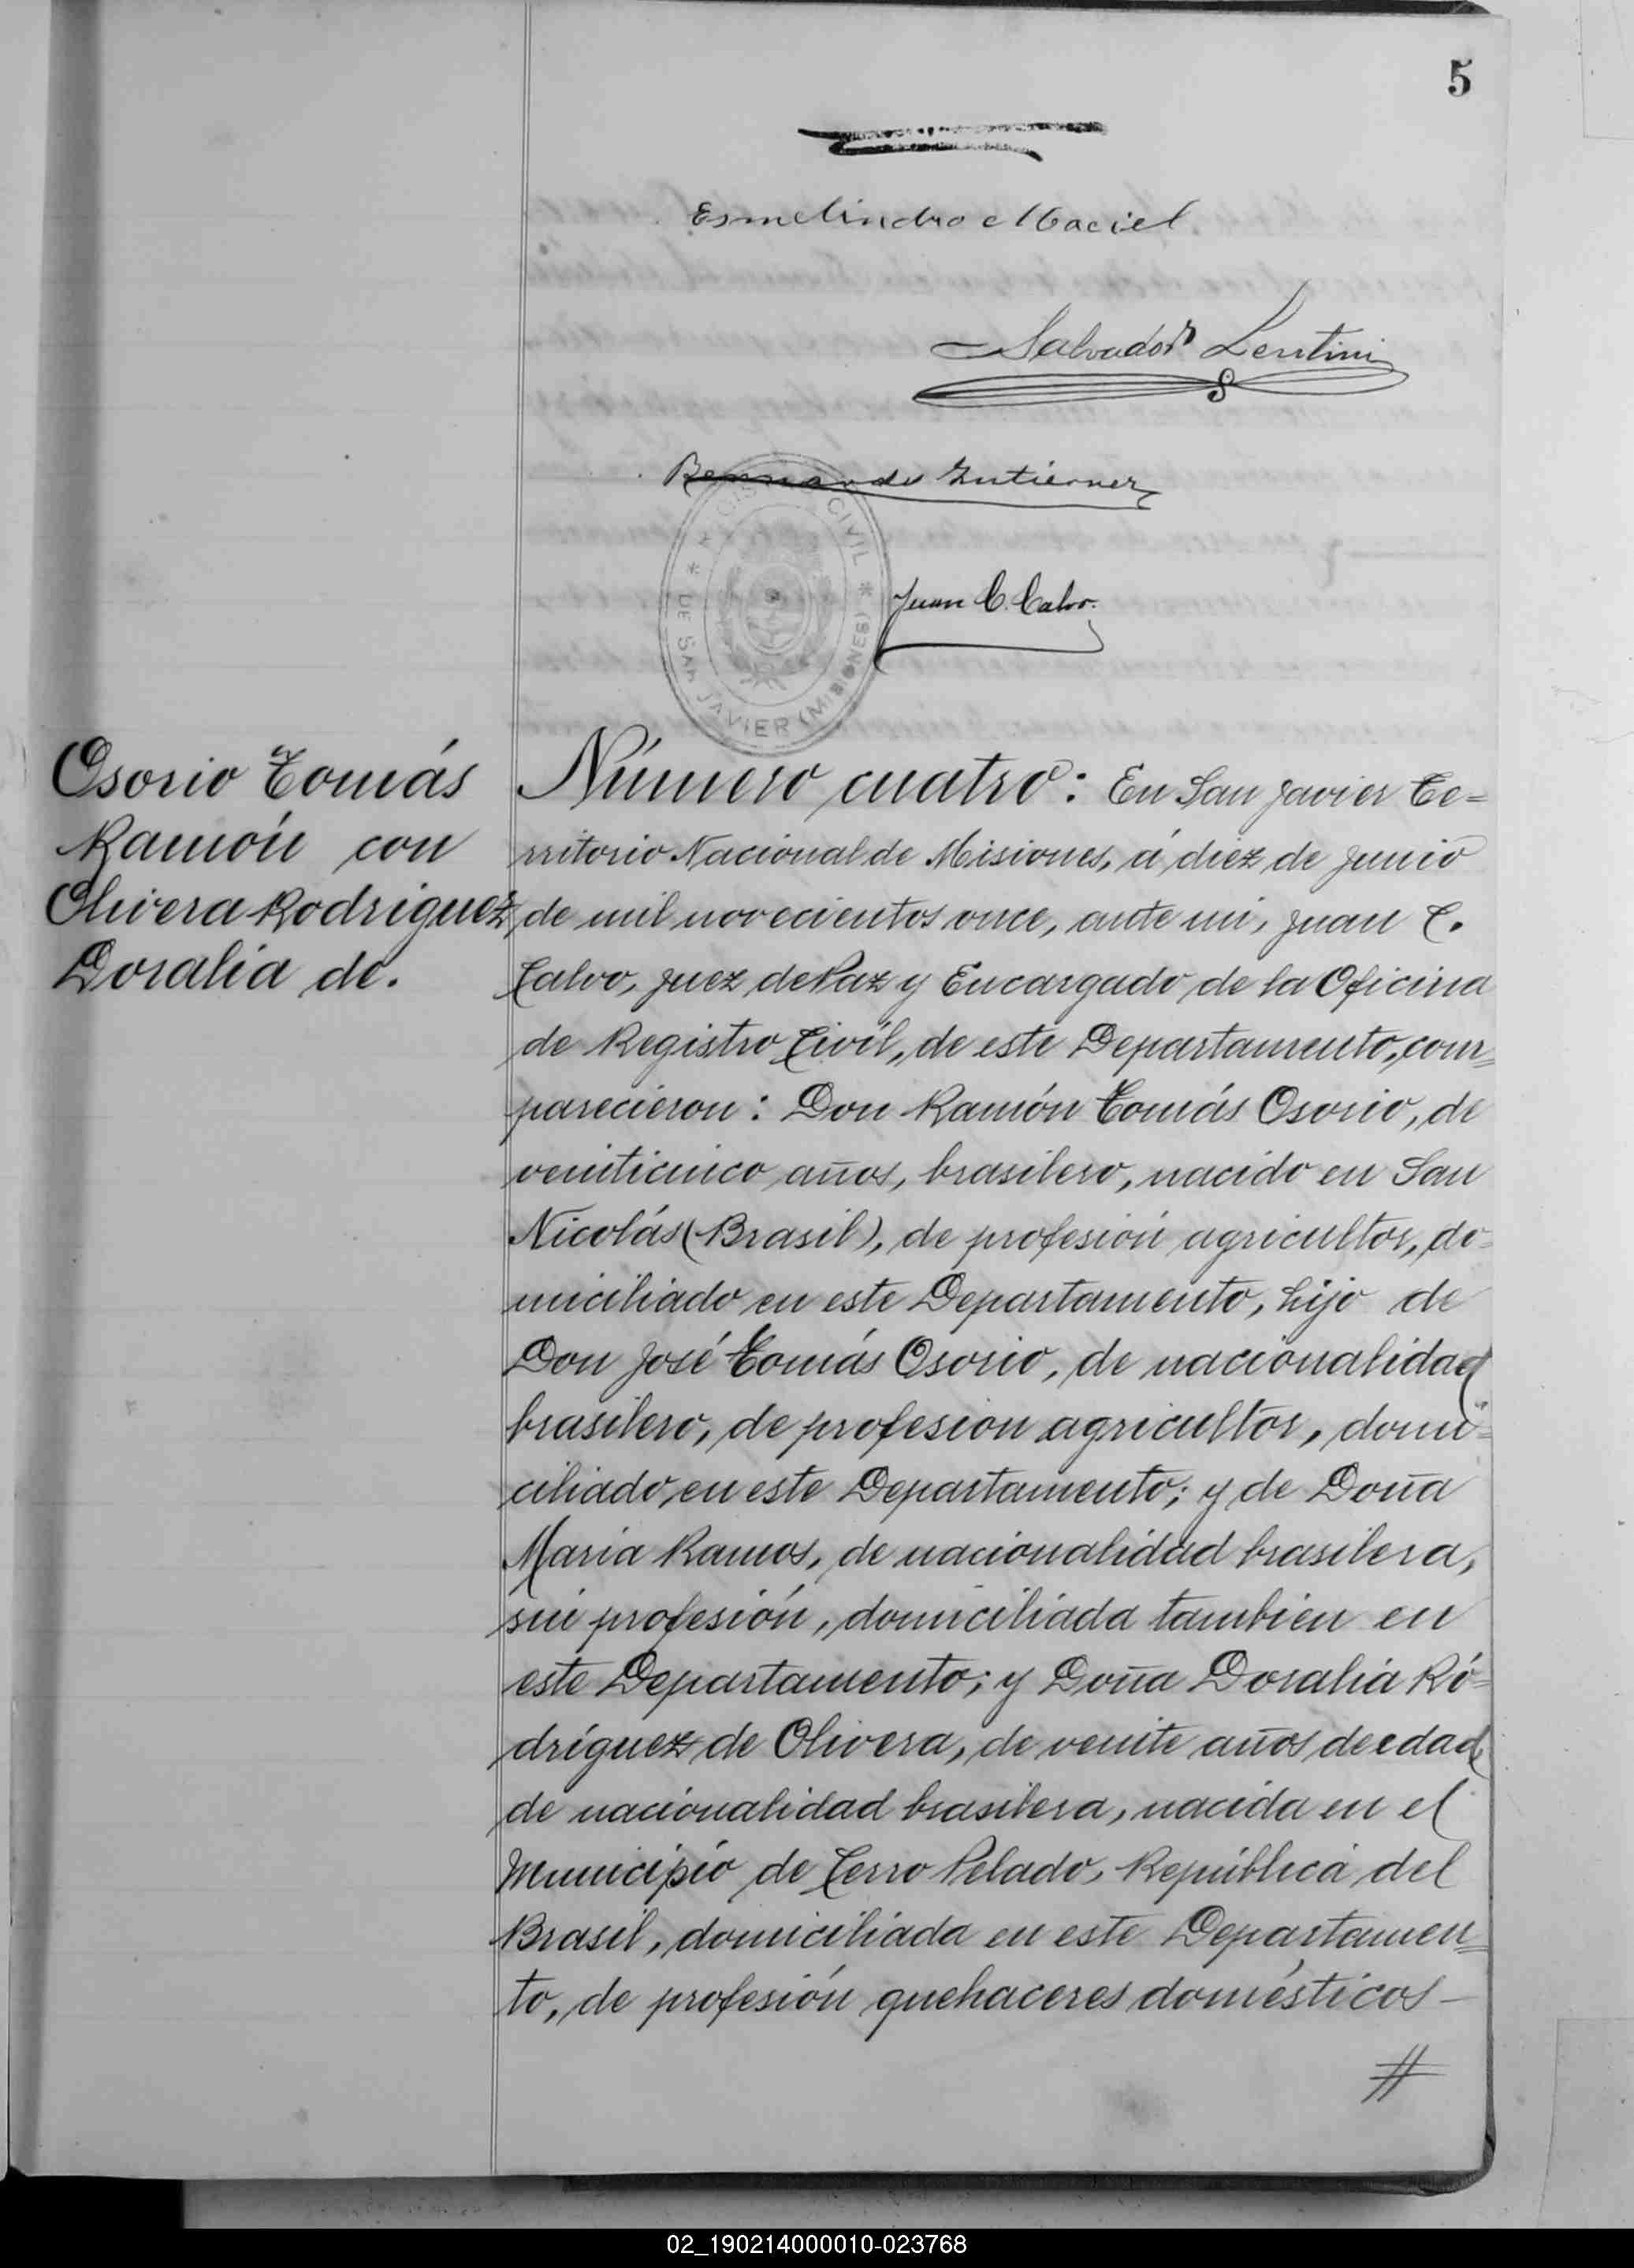 5
Esmelindro Maciel
Salvador Lentini
Bernardo Gutierrez
CIVIL * DE SAN JAVIER (MISIONES) *
Juan C. Calvo.
Osorio Tomás
Ramón con
Olivera Rodriguez,
Doralia de.
Número cuatro: En San Javier Te=
rritorio Nacional de Misiones, á diez de Junio
de mil novecientos once, ante mi, Juan C.
Calvo, Juez de Paz y Encargado de la Oficina
de Registro Civil, de este Departamento, com=
parecieron: Don Ramón Tomás Osorio, de
veinticinco años, brasilero, nacido en San
Nicolás (Brasil), de profesión agricultor, do-
miciliado en este Departamento, hijo de
Don José Tomás Osorio, de nacionalidad
brasilero, de profesion agricultor, domi=
ciliado, en este Departamento; y de Doña
Maria Ramos, de nacionalidad brasilera,
sin profesión, domiciliada tambien en
este Departamento; y Doña Doralia Ro=
driguez de Olivera, de veinte años de edad,
de nacionalidad brasilera, nacida en el
Municipio de Cerro Pelado, República del
Brasil, domiciliada en este Departamen=
to, de profesión quehaceres domésticos—
#
02_190214000010-023768